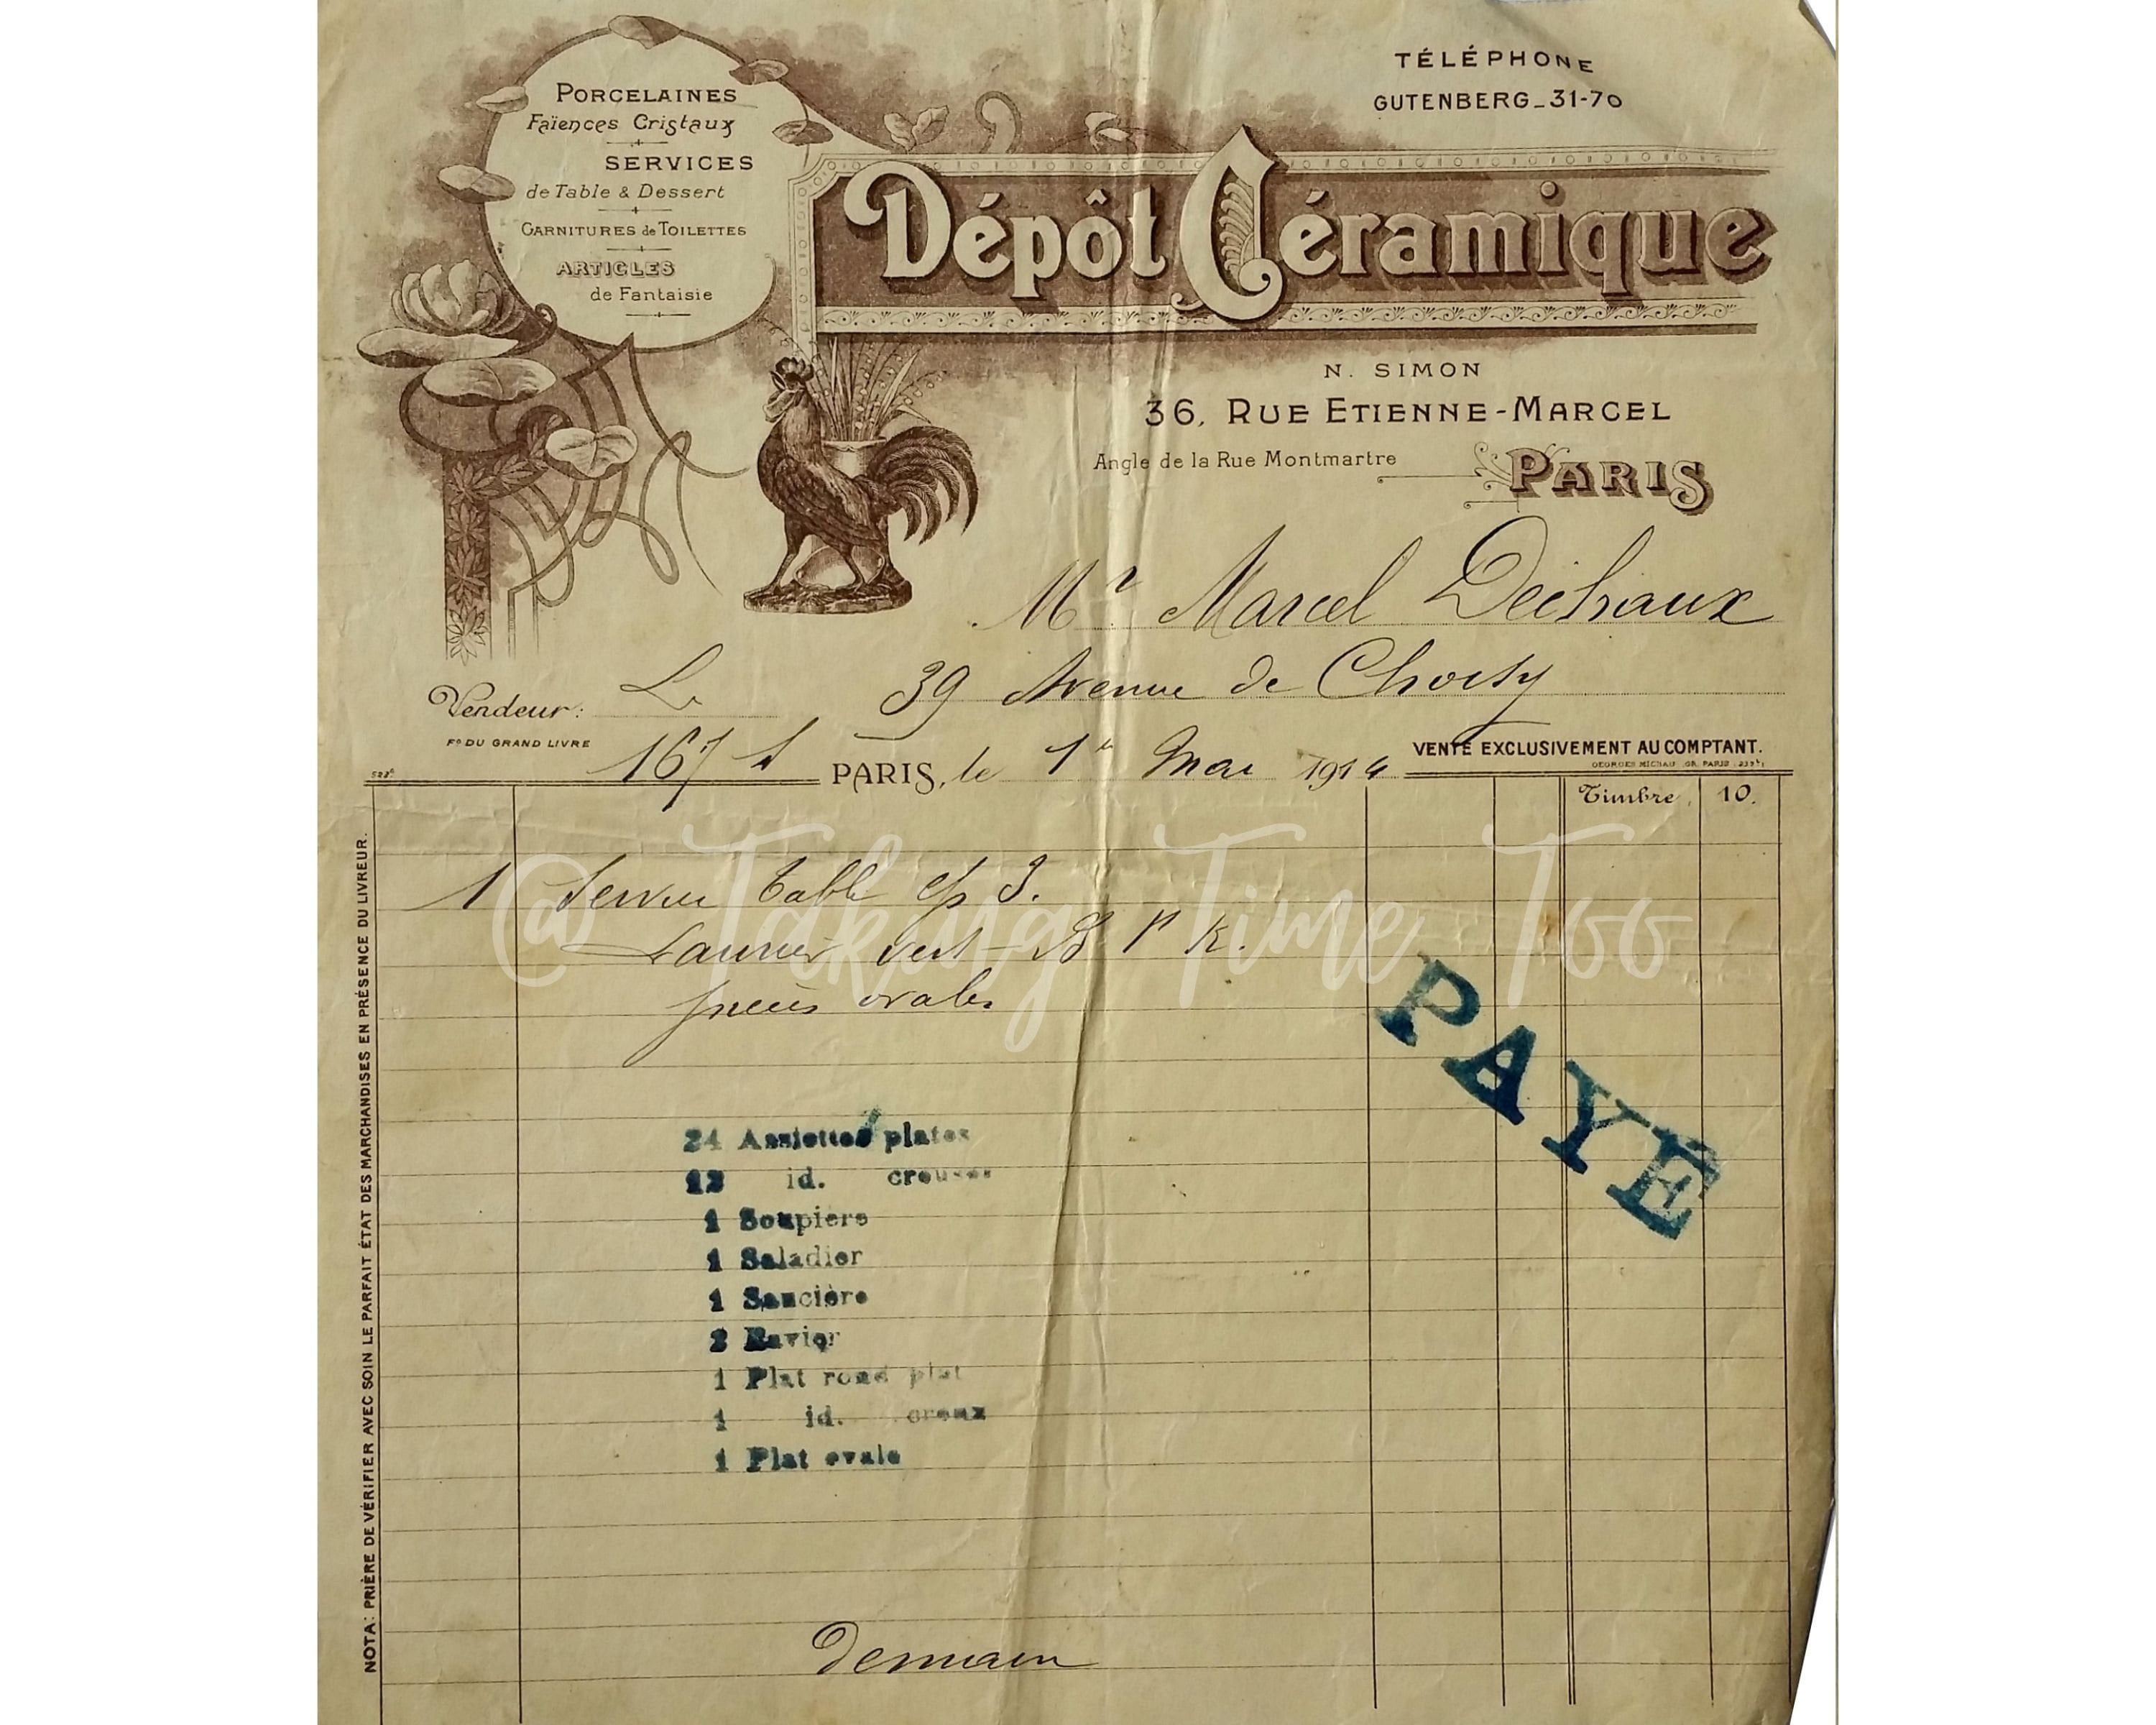 PORCELAINES
Faïences Cristaux
SERVICES
de Table & Dessert
GARNITURES de TOILETTES
ARTICLES
de Fantaisie
TÉLÉPHONE
GUTENBERG_31-70
Dépôt Céramique
N. SIMON
36, RUE ETIENNE-MARCEL
Angle de la Rue Montmartre
PARIS
Mr Marcel
39 Avenue de Choisy
Vendeur:
Fo DU GRAND LIVRE 167
PARIS, le 1er Mai 1914
VENTE EXCLUSIVEMENT AU COMPTANT.
Timbre 10.
NOTA: PRIÈRE DE VÉRIFIER AVEC SOIN LE PARFAIT ÉTAT DES MARCHANDISES EN PRÉSENCE DU LIVREUR.
1 Service Table
Laurier vert
pièces ovales
@ Taking Time Too
PAYE
24 Assiettes plates
12 id. creuses
1 Soupière
1 Saladier
1 Saucière
2 Ravier
1 Plat rond plat
1 id. creux
1 Plat ovale
Demain